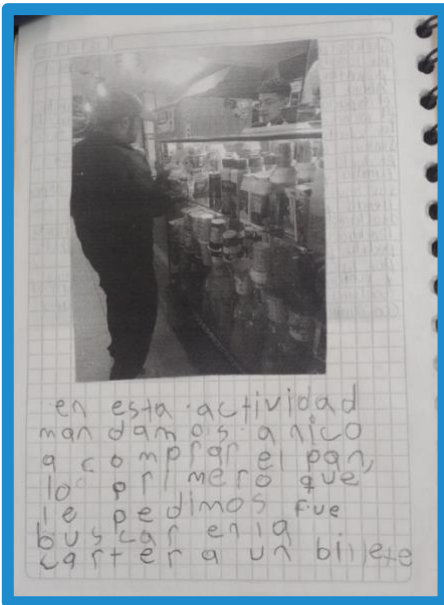 en esta actividad
man damos a nico
a comprar el pan,
lo primero que
le pedimos fue
buscar en la
cartera un billete